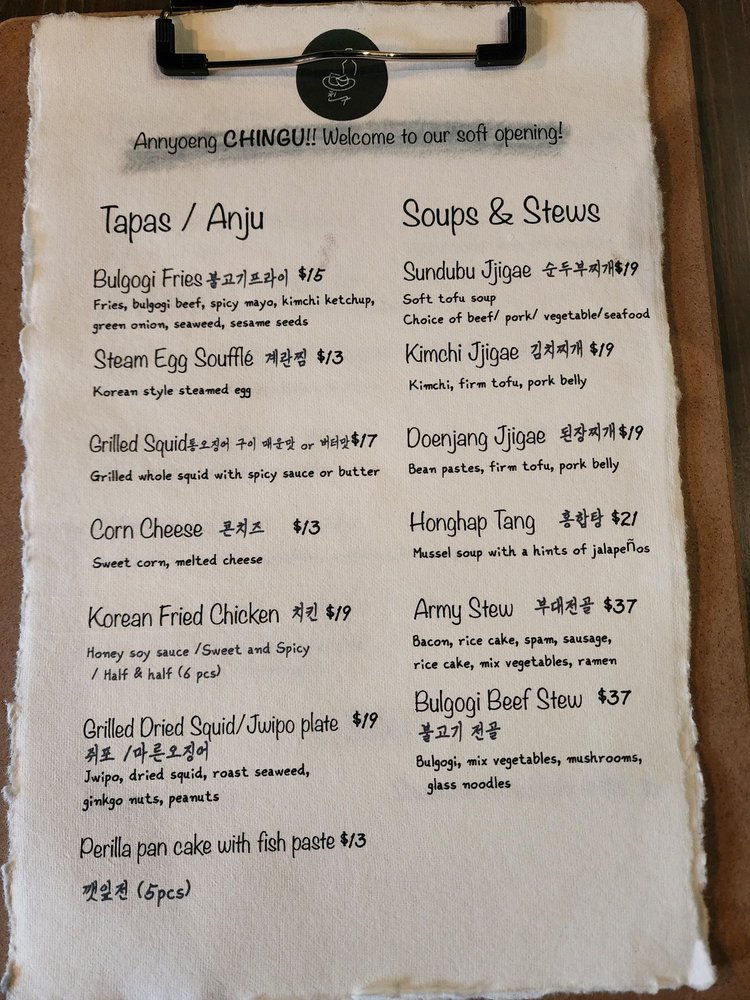 친구
Annyoeng CHINGU!! Welcome to our soft opening!
Tapas / Anju
Bulgogi Fries 불고기프라이 $15
Fries, bulgogi beef, spicy mayo, kimchi ketchup,
green onion, seaweed, sesame seeds
Steam Egg Soufflé 계란찜 $13
Korean style steamed egg
Grilled Squid통오징어 구이 매운맛 or 버터맛$17
Grilled whole squid with spicy sauce or butter
Corn Cheese 콘치즈 $13
Sweet corn, melted cheese
Korean Fried Chicken 치킨 $19
Honey soy sauce /Sweet and Spicy
/ Half & half (6 pcs)
Grilled Dried Squid/Jwipo plate $19
쥐포 /마른오징어
Jwipo, dried squid, roast seaweed,
ginkgo nuts, peanuts
Perilla pan cake with fish paste $13
깻잎전 (5pcs)
Soups & Stews
Sundubu Jjigae 순두부찌개$19
Soft tofu soup
Choice of beef/ pork/ vegetable/seafood
Kimchi Jjigae 김치찌개 $19
Kimchi, firm tofu, pork belly
Doenjang Jjigae 된장찌개$19
Bean pastes, firm tofu, pork belly
Honghap Tang 홍합탕 $21
Mussel soup with a hints of jalapeños
Army Stew 부대전골 $37
Bacon, rice cake, spam, sausage,
rice cake, mix vegetables, ramen
Bulgogi Beef Stew $37
불고기 전골
Bulgogi, mix vegetables, mushrooms,
glass noodles